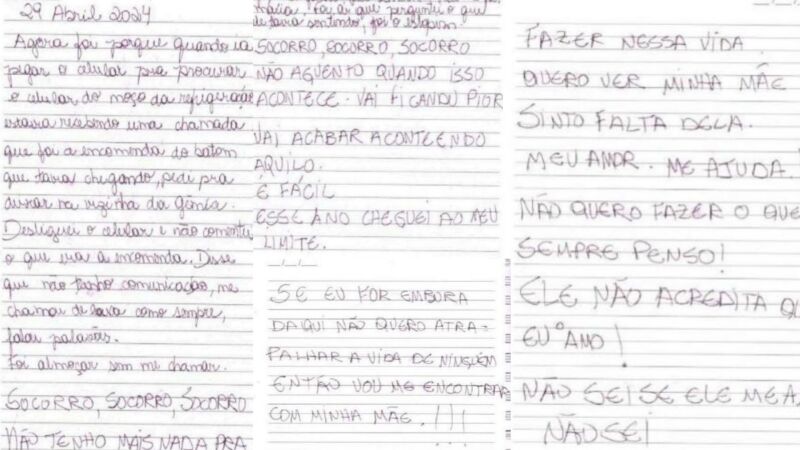 29 Abril 2024
Agora foi porque quando ia
pegar o celular pra procurar
o celular do moço da refrigeração
estava recebendo uma chamada
que foi a encomenda do batom
que tava chegando, pedi pra
deixar na vizinha da
Desliguei o celular e não comentei
o que era a encomenda. Disse
que não tenho comunicação, me
chamou de como sempre,
falou palavrão.
Foi almoçar sem me chamar.
SOCORRO, SOCORRO, SOCORRO
NÃO TENHO MAIS NADA PRA
foi aí que perguntei o que
tava sentindo, foi o estopim
SOCORRO, SOCORRO, SOCORRO
NÃO AGUENTO QUANDO ISSO
ACONTECE. VAI FICANDO PIOR
VAI ACABAR ACONTECENDO
AQUILO.
É FÁCIL
ESSE ANO CHEGUEI AO MEU
LIMITE.
SE EU FOR EMBORA
DAQUI NÃO QUERO ATRA-
PALHAR A VIDA DE NINGUÉM
ENTÃO VOU ME ENCONTRAR
COM MINHA MÃE.!!!
FAZER NESSA VIDA.
QUERO VER MINHA MÃE
SINTO FALTA DELA.
MEU AMOR. ME AJUDA.
NÃO QUERO FAZER O QUE
SEMPRE PENSO!
ELE NÃO ACREDITA QU
EU º ANO!
NÃO SEI SE ELE ME A
NÃO SEI